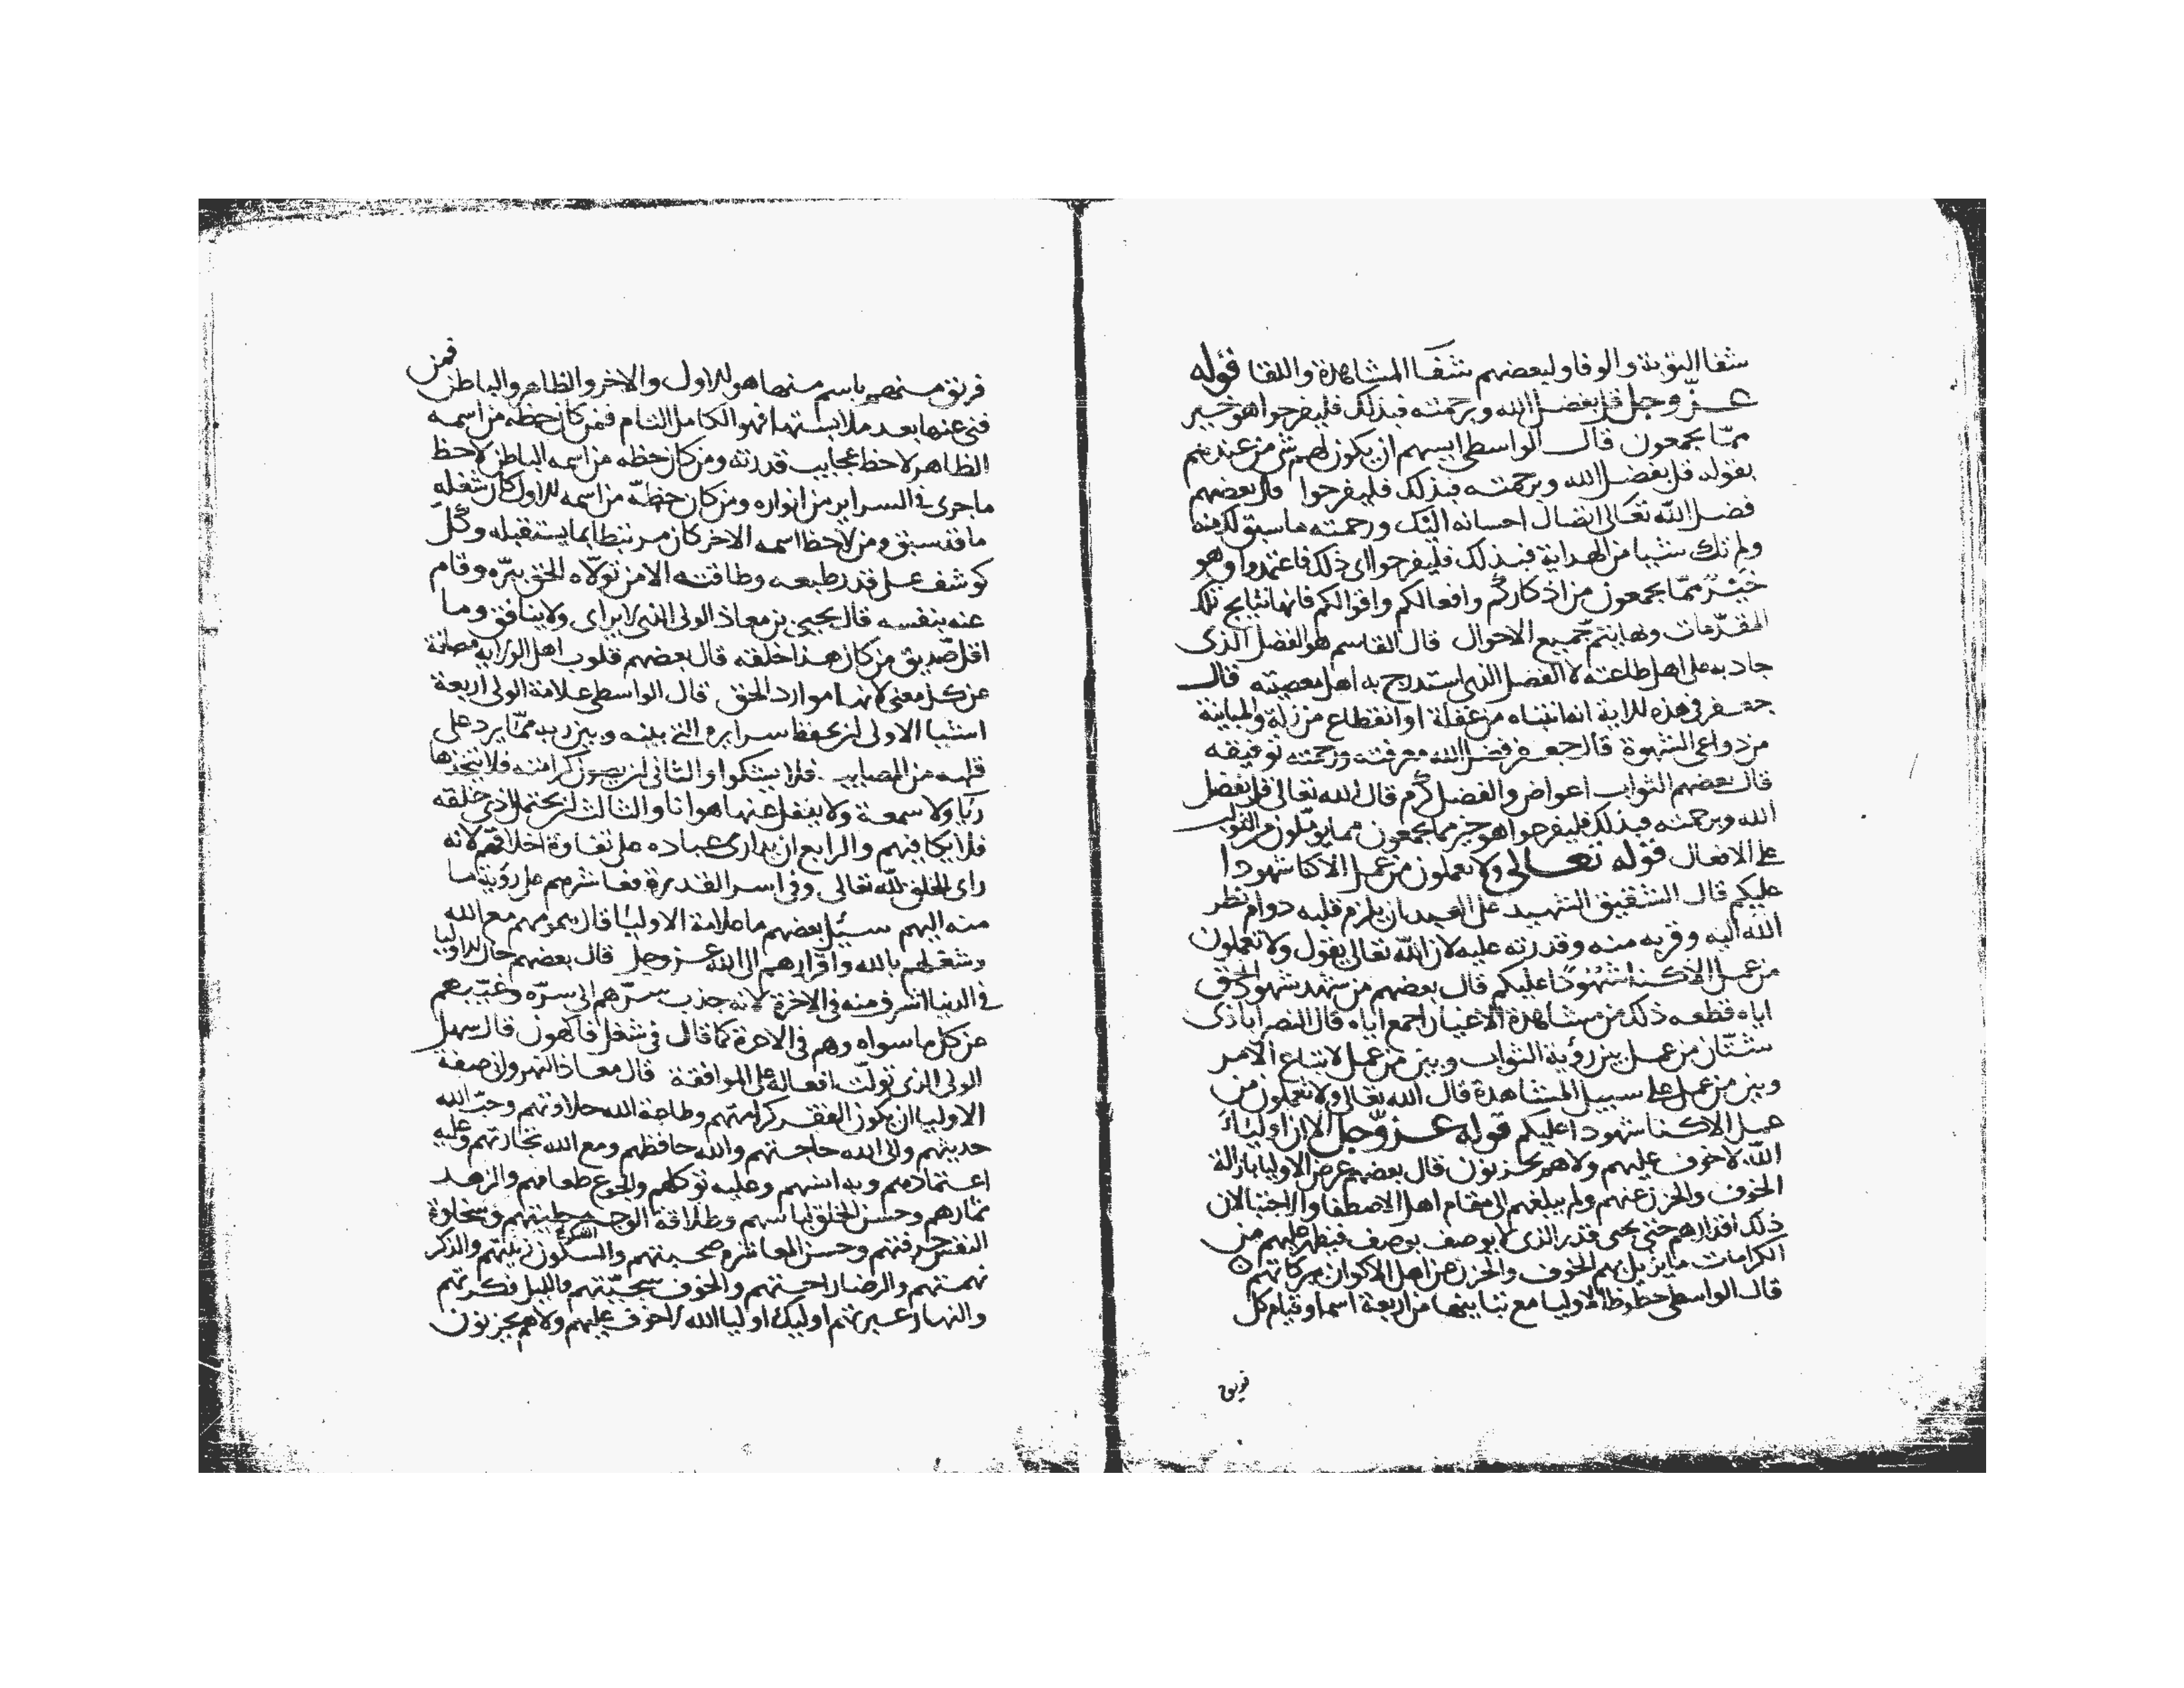 شفا التوبة والوفا ولبعضهم شفا المشاهدة واللقا قوله
عز وجل قل بفضل الله وبرحمته فبذلك فليفرحوا هو خير
مما يجمعون قال الواسطى ايسهم ان يكون لهم شى من عندهم
بقوله قل بفضل الله وبرحمته فبذلك فليفرحوا قال بعضهم
فضل الله تعالى ايصال احسانه اليك ورحمته ما سبق لك منه
ولم تك شيا من الهداية فبذلك فليفرحوا اى ذلك فاعتمدوا وهو
خير مما يجمعون من اذكاركم وافعالكم واقوالكم فانها نتايج تلك
المقدمات ونهايتم جميع الاحوال قال القاسم هو الفضل الذى
جاد به على اهل طاعته لا الفضل الذى استدرج به اهل معصيته قال
جعفر فى هذه الاية انه انتباه من غفلة او انقطاع من زلة والمباينة
من دواعى الشهوة قال جعفر فضل الله معرفته ورحمته توفيقه
قال بعضهم الثواب اعواض والفضل كرم قال الله تعالى قل بفضل
الله وبرحمته فبذلك فليفرحوا هو خير مما يجمعون مما يؤملون من الثواب
على الافعال قوله تعالى ولا تعملون من عمل الا كنا شهودا
عليكم قال الشقيق الشهيد على العبد ان يلزم قلبه دوام نظر
الله اليه وقربه منه وقدرته عليه لان الله تعالى يقول ولا تعملون
من عمل الا كنا شهودا عليكم قال بعضهم من شهد شهود الحق
اياه قطعه ذلك من مشاهدة الاغيار اجمع اياه قال النصراباذى
شتان من عمل بين رؤية الثواب وبين من عمل لاتباع الامر
وبين من عمل على سبيل المشاهدة قال الله تعالى ولا تعملون من
عمل الا كنا شهودا عليكم قوله عز وجل الا ان اولياء
الله لا خوف عليهم ولا هم يحزنون قال بعضهم عرض الاوليا بازالة
الخوف والحزن عنهم ولم يبلغهم الى مقام اهل الاصطفا والاجتبا لان
ذلك اقدارهم حتى يحى قدر الذى لا يوصف بوصف فيظهر عليهم من
الكرامات ما يزيل بهم الخوف والحزن عن اهل الاكوان ببركاتهم
قال الواسطى حظوظ الاوليا مع تباينها من اربعة اسما وقيام كل
فريق
فريق منهم باسم منها هو الاول والاخر والظاهر والباطن فمن
فنى عنها بعد ملابستها فهو الكامل التام فمن كان حظه من اسمه
الظاهر لاحظ عجايب قدرته ومن كان حظه من اسمه الباطن لاحظ
ما جرى فى السراير من انواره ومن كان حظه من اسمه الاول كان شغله
ما قد سبق ومن لاحظ اسمه الاخر كان مرتبطا بما يستقبله وكل
كوشف على قدر طبعه وطاقته الا من تولاه الحق ببره وقام
عنه بنفسه قال يحيى بن معاذ الولى الذى لا يراى ولا ينافق وما
اقل صديق من كان هذا خلقه قال بعضهم قلوب اهل الولاية مصانة
عن كل معنى لانها موارد الحق قال الواسطى علامة الولى اربعة
اشيا الاولى ان يحفظ سرايره التى بينه وبين ربه مما يرد على
قلبه من المصايب فلا يشكوا والثانى ان يصون كرامته فلا يتخذها
ريا ولا سمعة ولا يغفل عنها هوانا والثالث ان يحتمل اذى خلقه
فلا يكافيهم والرابع ان يدارى عباده على تفاوة اخلاقهم لانه
راى الخلق لله تعالى وفى اسر القدرة فعاشرهم على رؤية ما
منه اليهم سئل بعضهم ما علامة الاوليا قال همومهم مع الله
وشغلهم بالله وافرارهم الى الله عز وجل قال بعضهم حال الاوليا
فى الدنيا اشرف منه فى الاخرة لانه جذب سرهم الى سره وغيبهم
عن كل ما سواه وهم فى الاخرة كما قال فى شغل فاكهون قال سهل
الولى الذى تولت افعاله على الموافقة قال معاذ النهروانى صفة
الاوليا ان يكون الفقر كرامتهم وطاعة الله حلاوتهم وحب الله
حديثهم والى الله حاجتهم والله حافظهم ومع الله تجارتهم وعليه
اعتمادهم وبه انسهم وعليه توكلهم والجوع طعامهم والزهد
ثمارهم وحسن الخلق لباسهم وطلاقة الوجه حليتهم وسخاوة
النفس حرفتهم وحسن المعاشرة صحبتهم والسكون زينتهم والذكر
نهمتهم والرضا راحتهم والخوف سجيتهم والليل فكرتهم
والنهار عبرتهم اوليك اوليا الله لا خوف عليهم ولا هم يحزنون